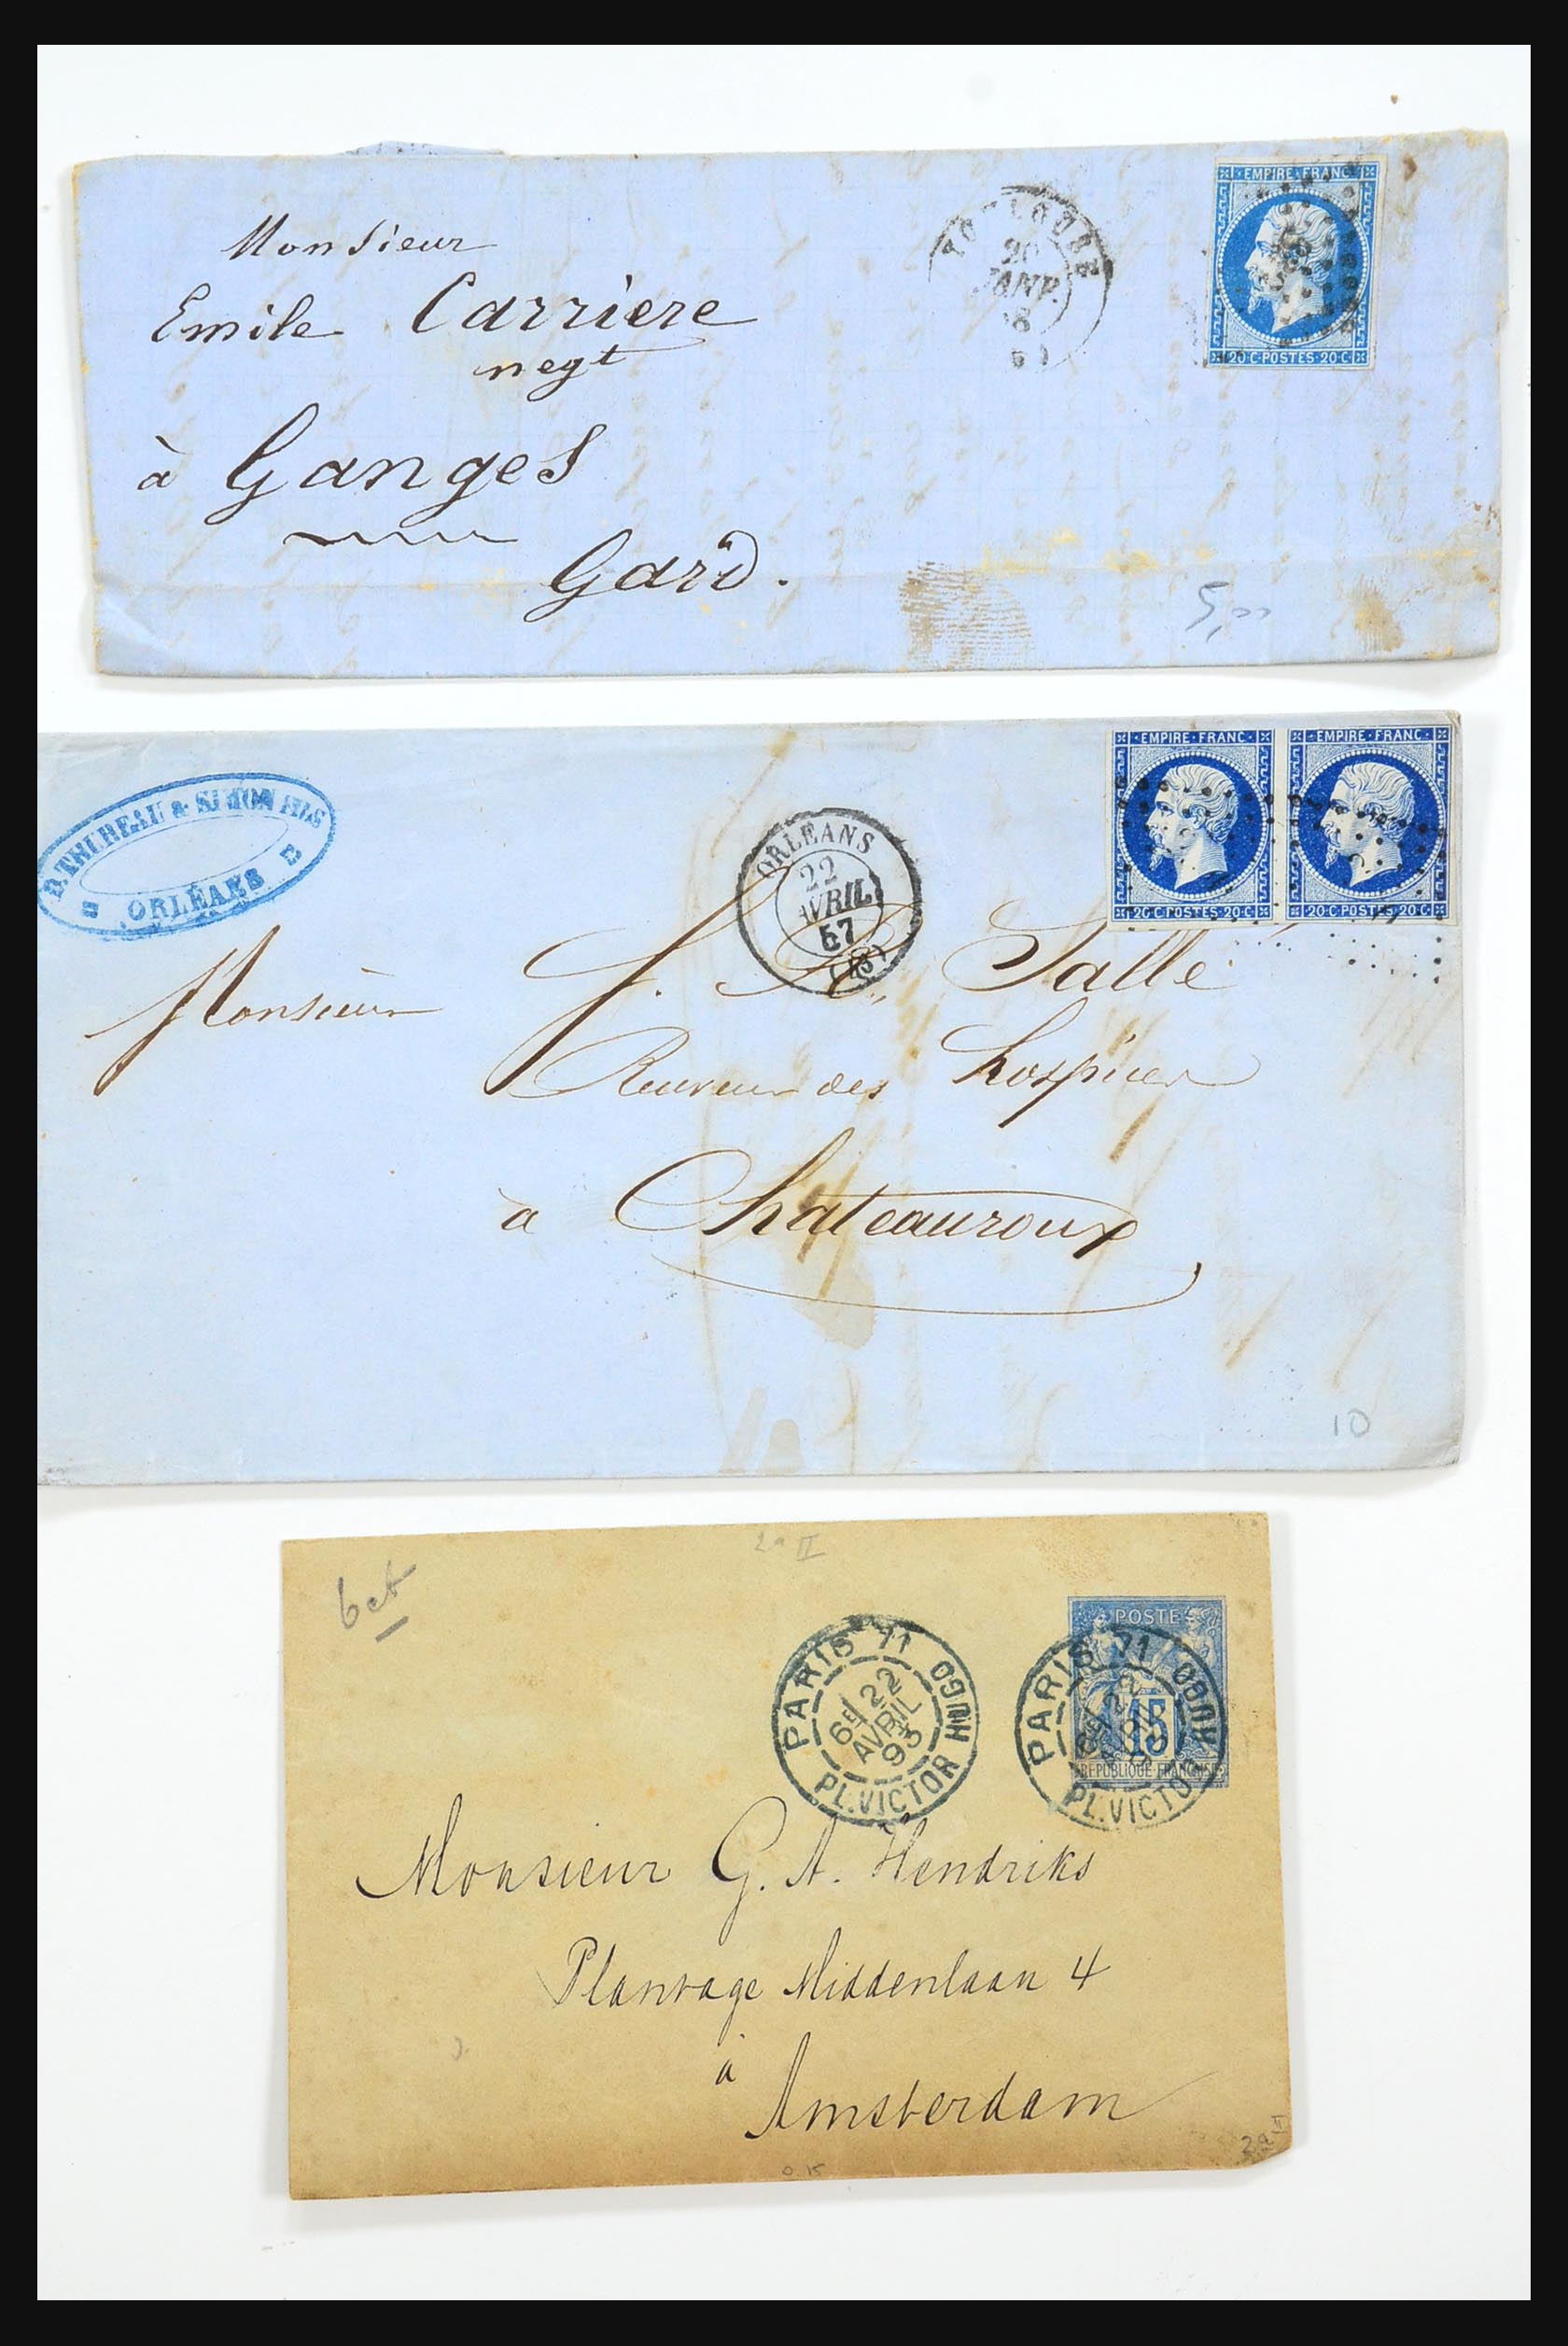 Monsieur
Emile Carriere
negt
à Ganges
Gard.
20
JANV.
EMPIRE·FRANC
20·C·POSTES·20·C
5,
B. THUREAU & SIMON FILS
ORLÉANS
ORLEANS
22
AVRIL
57
EMPIRE·FRANC·
20·C·POSTES·20·C
EMPIRE·FRANC·
20·C·POSTES·20·C
Monsieur Salle
des hospices
à Chateauroux
10
2a II
6 ct
PARIS 71
6E 22
AVRIL
93
PL. VICTOR HUGO
POSTES
15
REPUBLIQUE FRANÇAISE
PARIS 71
22
AVRIL
PL. VICTOR HUGO
Monsieur G. A. Hendriks
Plantage Middenlaan 4
à
Amsterdam
0.15